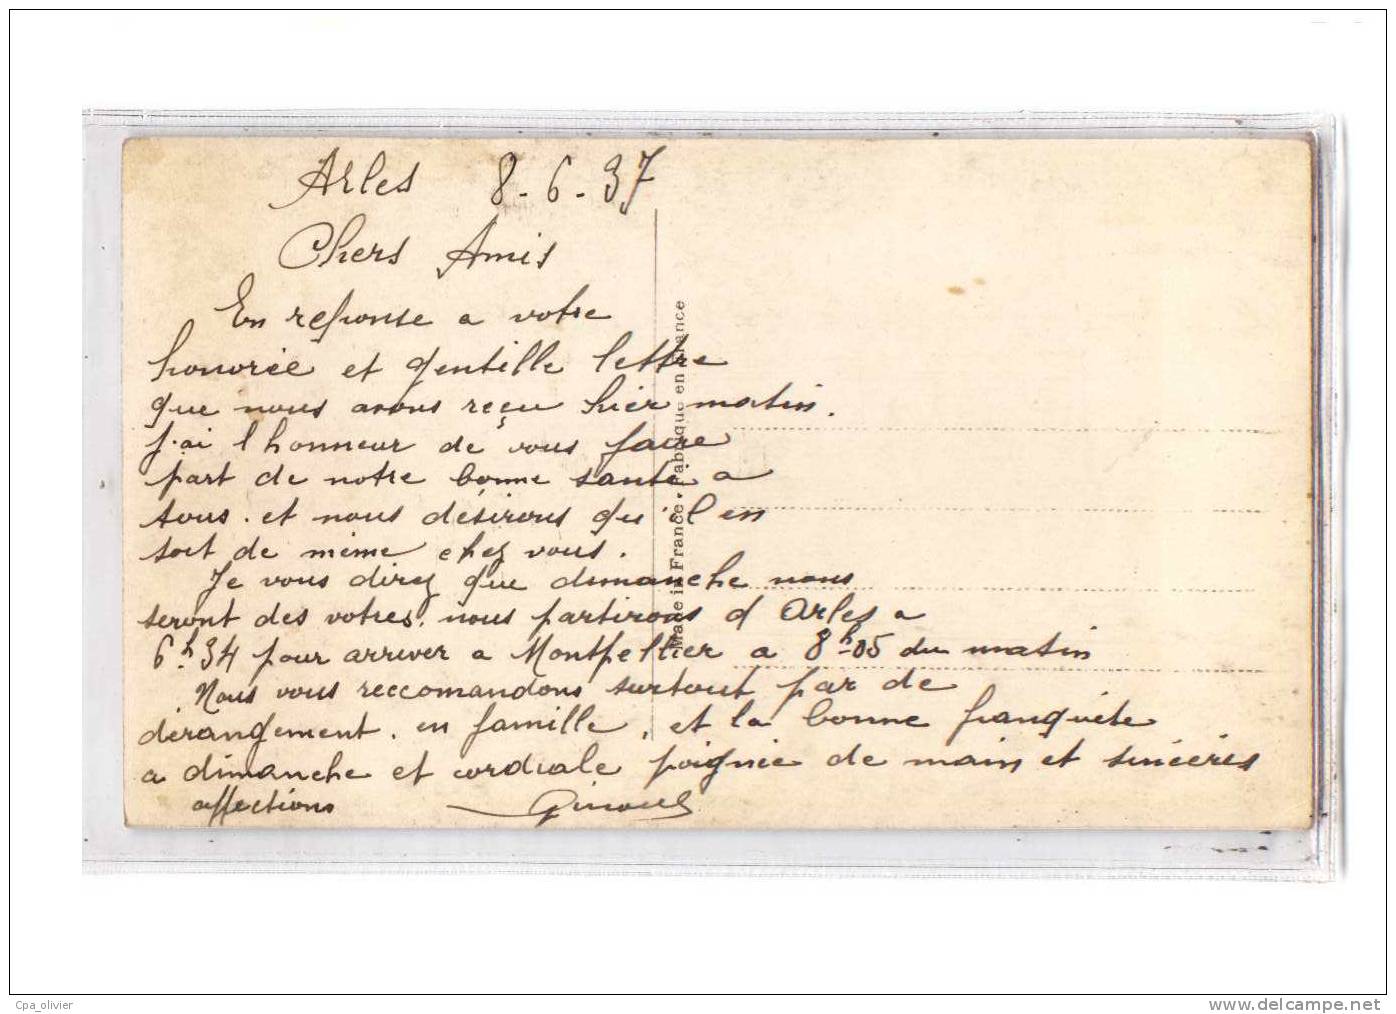 Arles 8-6-37
Chers Amis
En reponse a votre
honorée et gentille lettre
que nous avons reçu hier matin.
j'ai l honneur de vous faire
part de notre bonne santé a
tous. et nous désirons qu'il en
soit de même chez vous.
Je vous direz que dimanche nous
seront des votres. nous partirons d Arles a
6h.34 pour arriver a Montpellier a 8h-05 du matin
Nous vous reccomandons surtout par de
dérangement. en famille. et la bonne franquète
a dimanche et cordiale poignée de main et sincères
affections
Made in France - Fabriqué en France
Cpa_olivier
www.delcampe.net